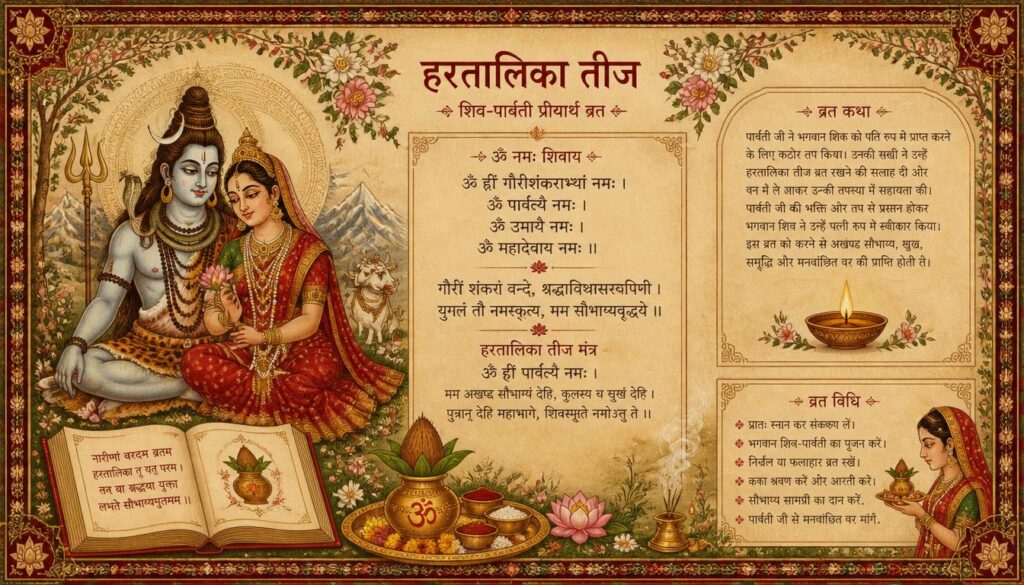 हरतालिका तीज
शिव-पार्वती प्रीयार्थ ब्रत
ॐ नमः शिवाय
ॐ ह्रीं गौरीशंकराभ्यां नमः ।
ॐ पार्वत्यै नमः ।
ॐ उमायै नमः ।
ॐ महादेवाय नमः ॥
गौरीं शंकरां वन्दे,
युगलं तौ नमस्कृत्य, मम सौभाग्यवृद्धये ॥
हरतालिका तीज मंत्र
ॐ ह्रीं पार्वत्यै नमः ।
मम अखण्ड सौभाग्यं देहि, कुलस्य च सुखं देहि ।
पुत्रान् देहि महाभागे, ते ॥
व्रत कथा
पार्वती जी ने भगवान शिक को पति रुप मे प्राप्त करने
के लिए कठोर तप किया। उनकी सखी ने उन्हें
हरतालिका तीज ब्रत रखने की सलाह दी और
वन में ले आकर उन्की तपस्या में सहायता की।
पार्वती जी की भक्ति ओर तप से प्रसन्न होकर
भगवान शिव ने उन्हें पत्नी रुप मे स्वीकार किया।
इस व्रत को करने से अखण्ड सौभाग्य, सुख,
समृद्धि ओर मनवांछित वर की प्राप्ति होती है।
व्रत विधि
प्रातः स्नान कर लें।
भगवान शिव-पार्वती का पूजन करें।
या फलाहार ब्रत रखें।
कका श्रवण करें ओर आरती करें।
सौभाग्य सामग्री का दान करें.
पार्वती जी से मनवांछित वर मांगें.
वरदम ब्रतम
हरतालिका तु यत् परम ।
तन या श्रद्धया युक्ता
लभते
ॐ